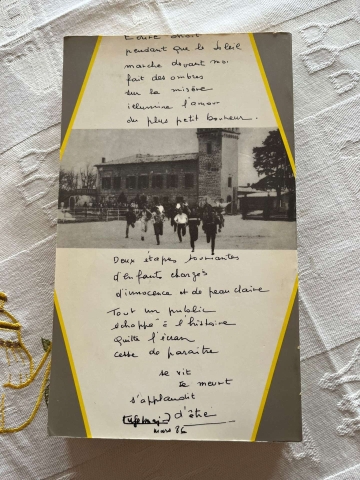 pendant que le soleil
marche devant moi
fait des ombres
sur la misère
illumine l'amour
du plus petit bonheur.
Deux étapes tournantes
d'enfants chargés
d'innocence et de peau claire
Tout un public
échappé à l'histoire
quitte l'écran
cesse de paraître
se vit
se meurt
s'applaudit
d'être
Mars 86